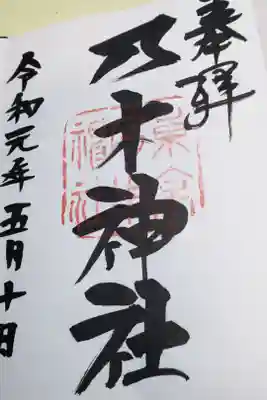 奉拝
乃木神社
令和元年五月十日